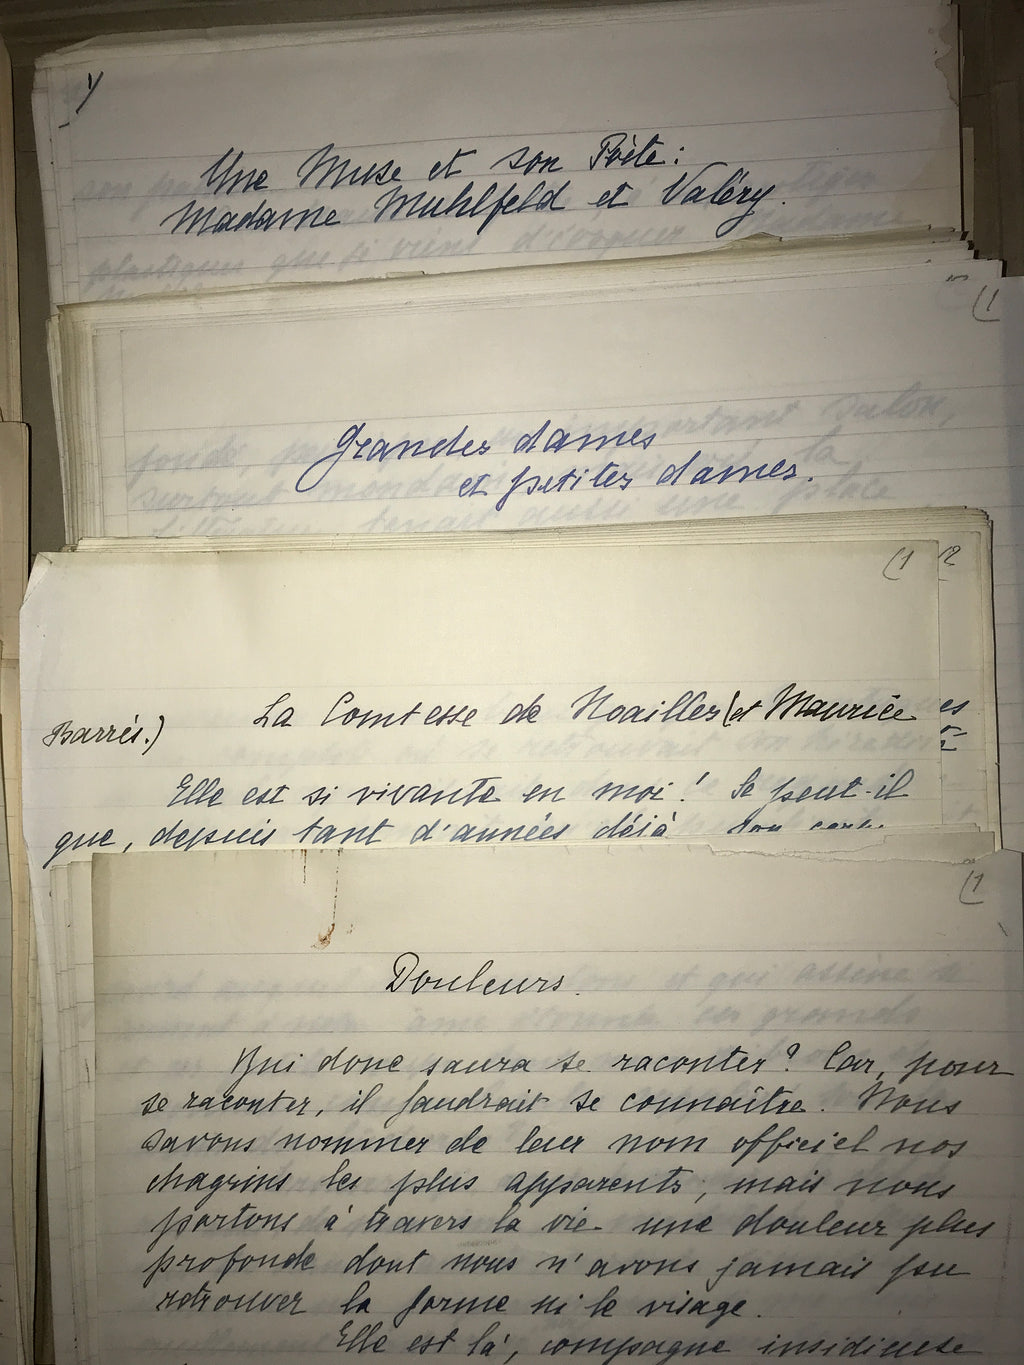 1/
Une Muse et son Poète :
Madame Muhlfeld et Valéry.
(1
Grandes dames
et petites dames.
(1
(2
La Comtesse de Noailles (et Maurice
Barrès.)
es
Elle est si vivante en moi ! Se peut-il
que, depuis tant d'années déjà
(1
Douleurs.
Qui donc saura se raconter ? Car, pour
se raconter, il faudrait se connaître. Nous
savons nommer de leur nom officiel nos
chagrins les plus apparents, mais nous
portons à travers la vie une douleur plus
profonde dont nous n'avons jamais pu
retrouver la forme ni le visage.
Elle est là, compagne insidieuse